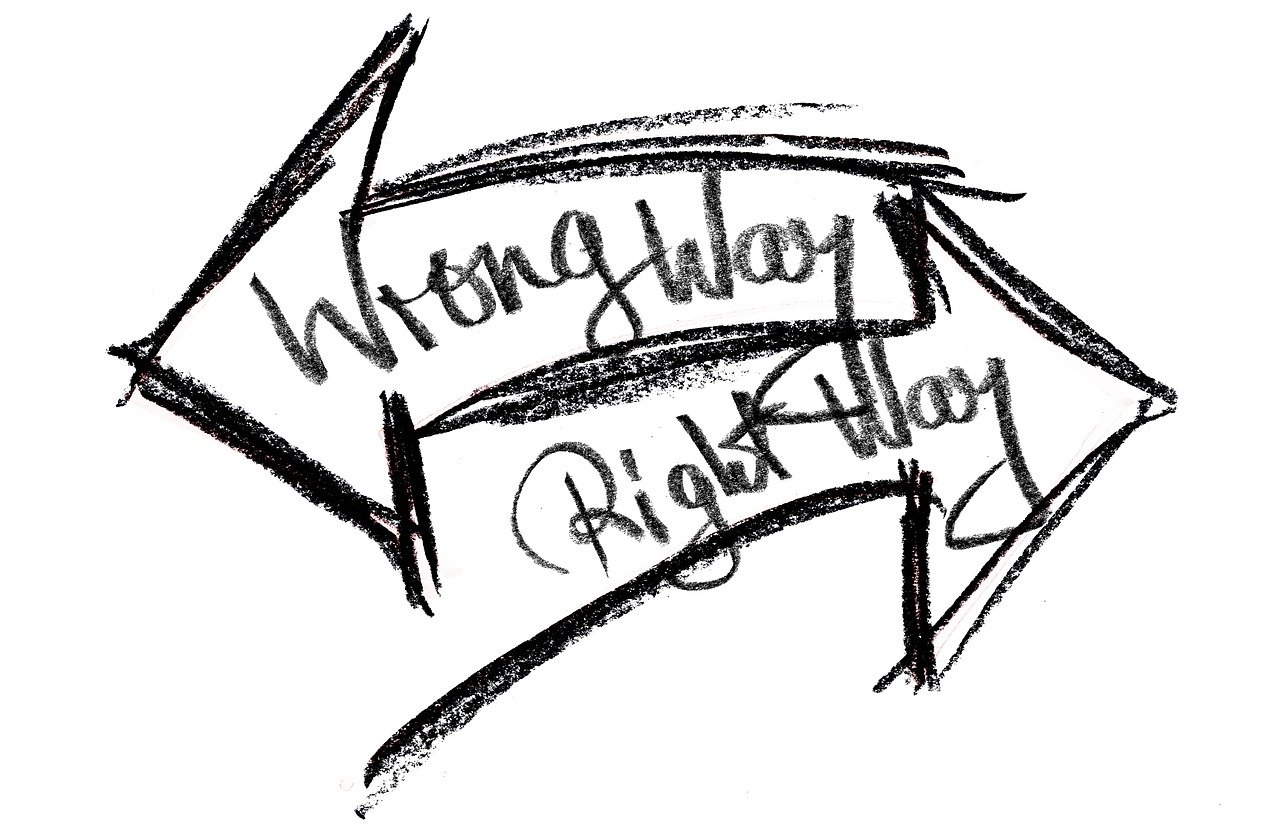 Wrong Way
Right Way